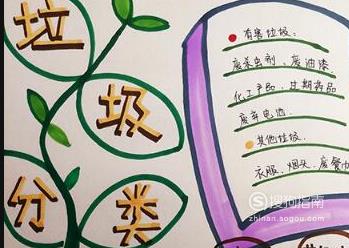 垃
圾
分
类
有害垃圾:
废杀虫剂、废油漆
化工产品、过期药品
废弃电池
其他垃圾:
衣服、烟头、废餐巾
搜狗指南
zhinan.sogou.com